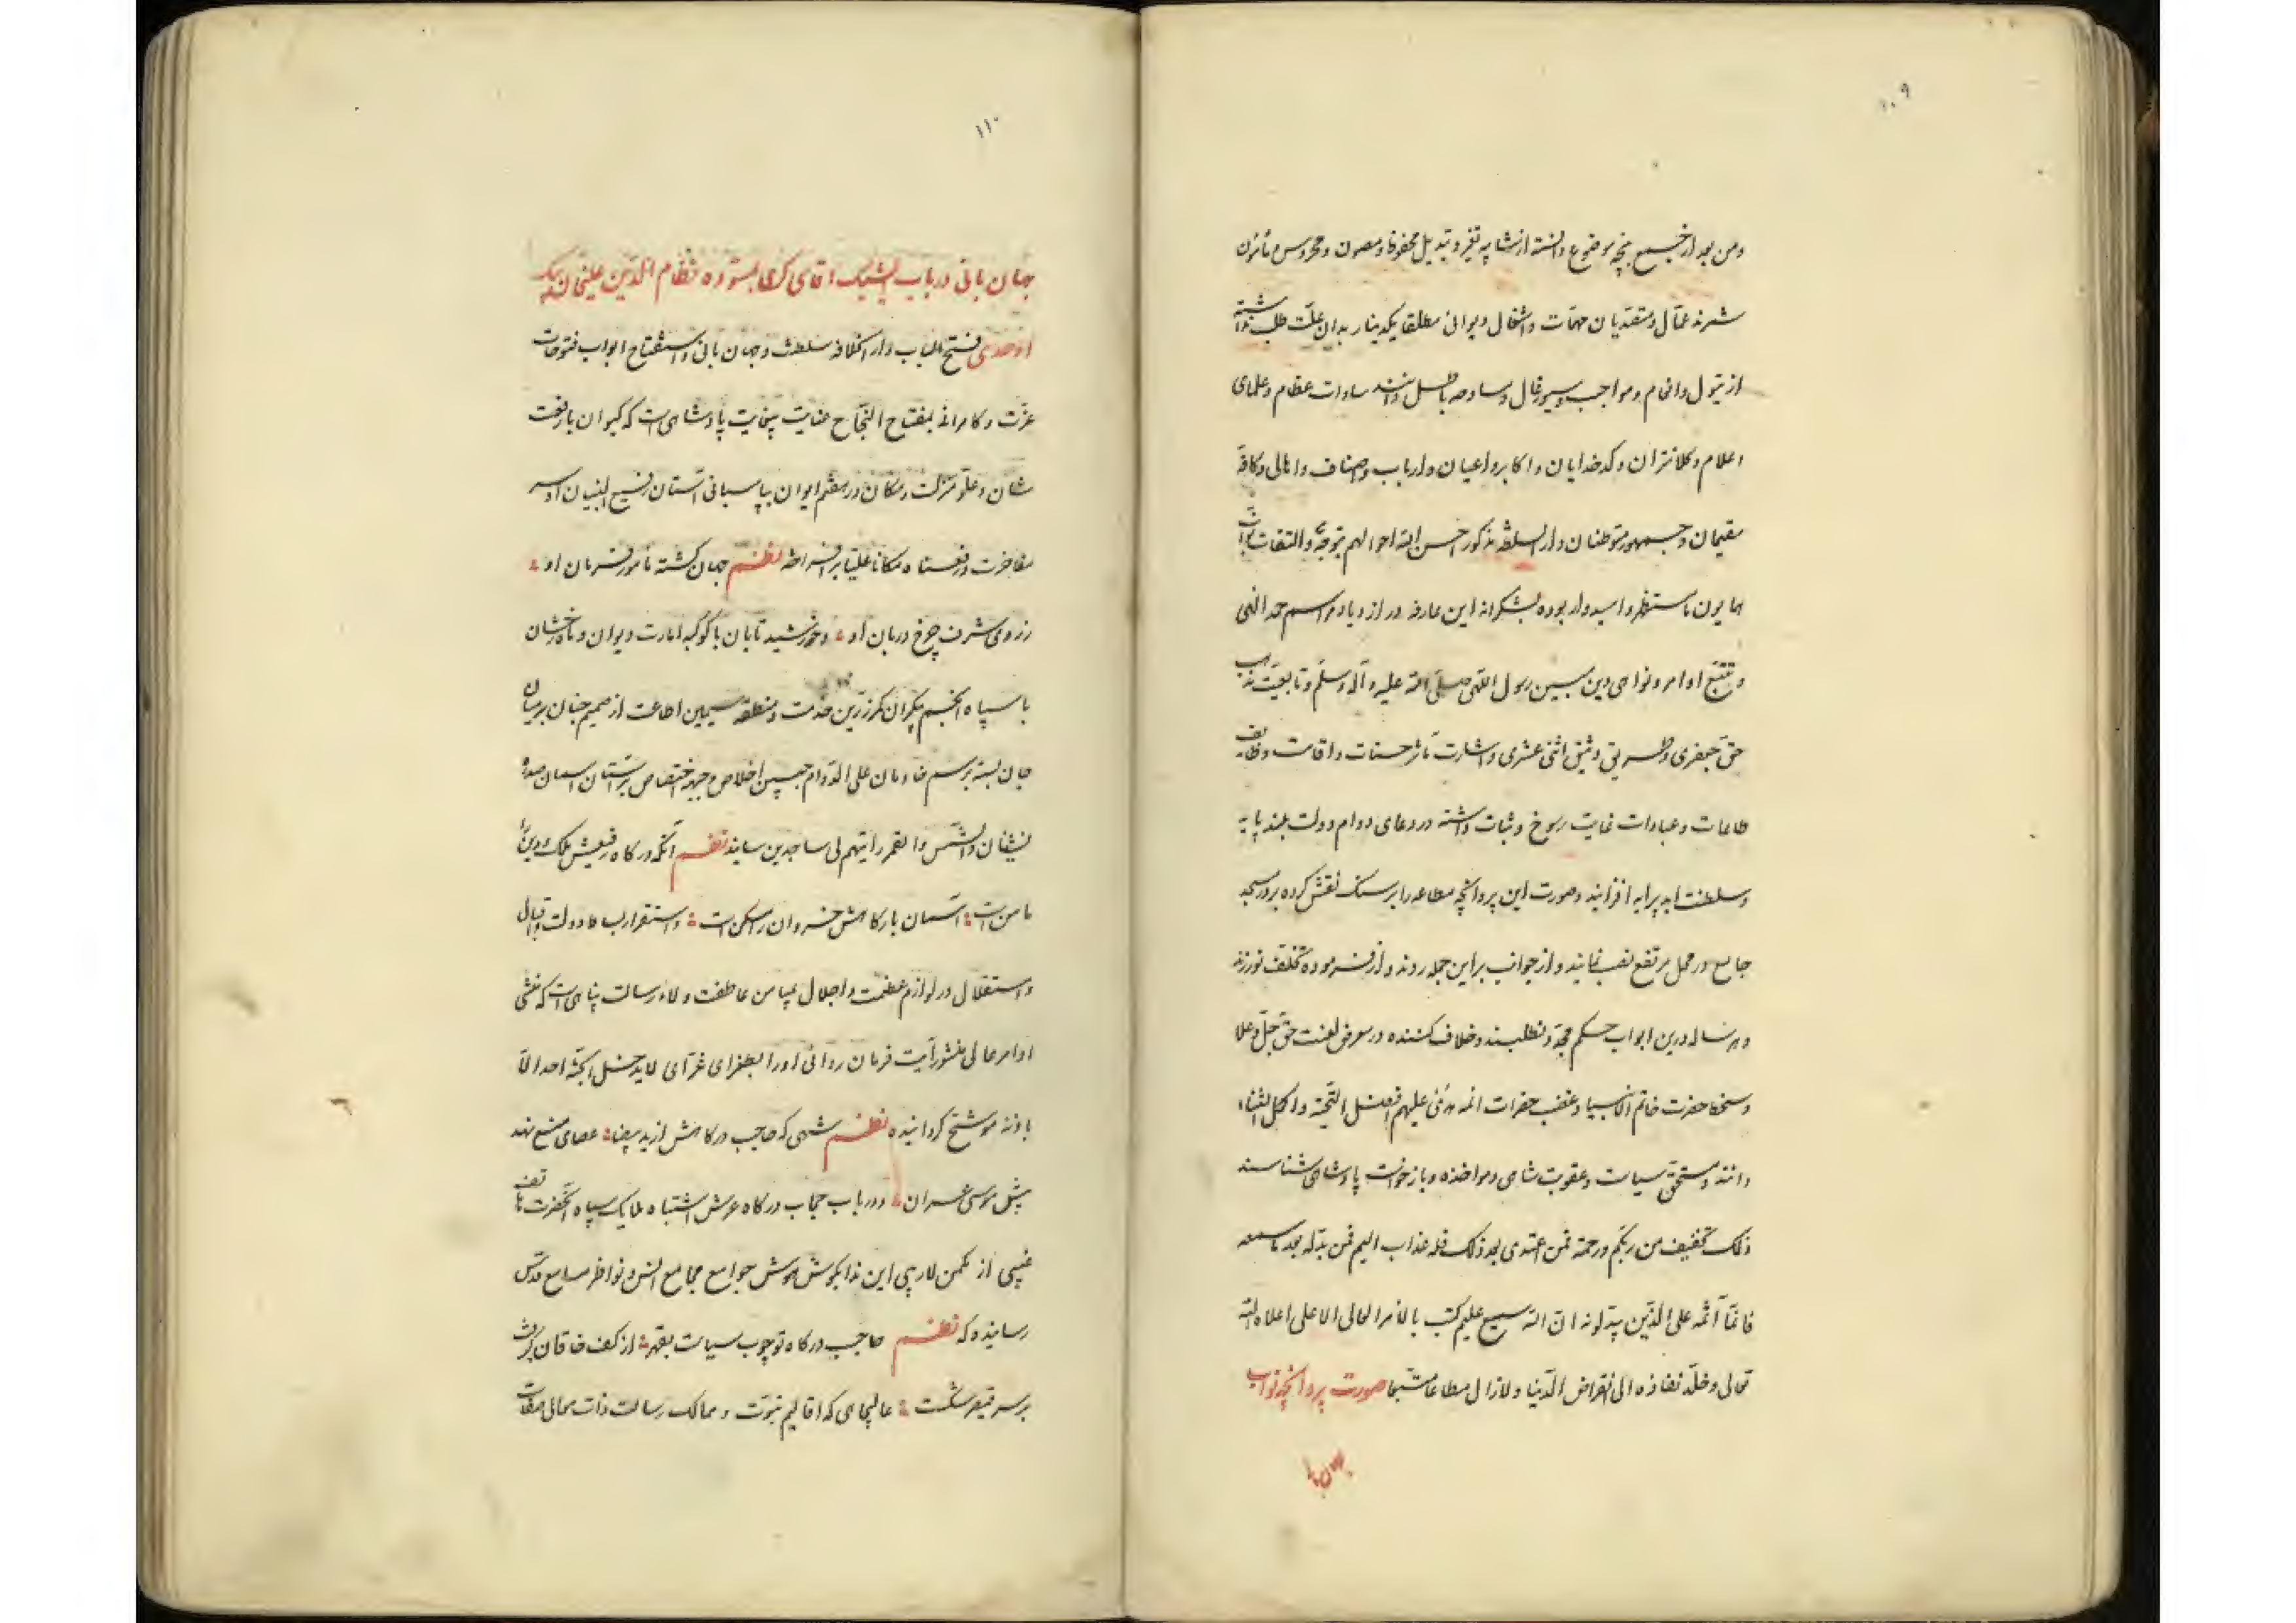 ۱۰۹
ومن بعد از جمیع بنیچه موضوع دانسته از شایبه تغیر و تبدیل محفوظ و مصون و محروس و مأمون
شمرند عمال و متصدیان مهمات و اشغال دیوانی مطلقا یکدینار بدان علت طلب نداشته
از تیول و انعام و مواجب و سیورغال و مساوصه باطل دانند سادات عظام و علمای
اعلام و کلانتران و کدخدایان و اکابر و اعیان و ارباب و اصناف و اهالی و کافه
مقیمان و جمهور متوطنان دار السلطنه مذکور احسن الله احوالهم بتوجه و التفات نواب
همایون ما مستظهر و امیدوار بوده بشکرانه این عارفه در ازدیاد مراسم حمد الهی
و تتبع اوامر و نواهی دین مبین رسول اللهی صلی الله علیه و آله وسلم و تابعیت مذهب
حق جعفری و طریق وثیق اثنی عشری و اشارت مآثر حسنات و اقامت وظایف
طاعات و عبادات غایت رسوخ و ثبات داشته در دعای دوام دولت بلند پایه
و سلطنت ابد پیرایه افزایند و صورت این پروانچه مطاعه را بر سنک نقش کرده بر در مسجد
جامع در محل مرتفع نصب نمایند و از جوانب براین جمله روند و از فرموده تخلف نورزند
و هر ساله درین ابواب حکم مجدد نطلبند و خلاف کننده در معرض لعنت حق جل و علا
و سخط حضرت خاتم الانبیا و غضب حضرات ائمه هدی علیهم افضل التحیة و اکمل الثناء
دانند و مستحق سیاست و عقوبت شاهی و مواخذه و بازخواست پادشاهی شناسند
ذلک تخفیف من ربکم ورحمة فمن اعتدی بعد ذلک فله عذاب الیم فمن بدله بعد ما سمعه
فانما اثمه علی الذین یبدلونه ان الله سمیع علیم کتب بالامر العالی الاعلی اعلاه الله
تعالی و خلد نفاذه الی انقراض الدنیا و لازال مطاعا متبعا صورت پروانچه نواب
۱۱۰
جهان بانی در باب ایشیک اقاسی کری نظام الدین علیخان بیک
اوحدی فتح الباب دار الخلافه سلطنت و جهان بانی و استفتاح ابواب فتوحات
عزت و کامرانی بمفتاح النجاح عنایت بیغایت پادشاهی است که کیوان با رفعت
شان و علو منزلت و مکان در هفتم ایوان بپاسبانی آستان رفیع البنیان او سر
مفاخرت و رفعناه مکانا علیا برافراخته نظم جهان کشته مأمور فرمان او
ز روی شرف چرخ دربان او و خورشید تابان با کوکبه امارت دیوان و ماه رخشان
با سپاه انجم بیکران کمر زرین خدمت و منطقه سیمین اطاعت از صمیم جنان بر میان
جان بسته برسم خادمان علی الدوام جبین اخلاص و جبهه اختصاص بر آستان آسمان سده
نشینان و الشمس و القمر رایتهم لی ساجدین سایند نظم آنکه درکاه رفیعش ملک و دین را
مامن است آسمان بارکاهش خسروان را مسکن است و استقرار بساط دولت و اقبال
و استقلال در لوازم عظمت و اجلال بمیامن عاطفت و ولاء رسالت پناهی است که منشی
اوامر عالی منشور آیت فرمان روائی او را بطغرای غرای لا یدخل الجنة احد الا
باذنه موشح کردانیده نظم شهی که حاجب درکاهش از ید بیضا عصای منع نهد
پیش موسی عمران و در باب حجاب درکاه عرش اشتباه ملایک سپاه آنحضرت هاتف
غیبی از مکمن لاریبی این ندا بکوش هوش جوامع مجامع انس و نواظر مسامع قدس
رسانیده که نظم حاجب درکاه تو چوب سیاست بقهر از کف خاقان کرفت
بر سر قیصر شکست عالیجاهی که اقالیم نبوت و ممالک رسالت ذات معالی صفات